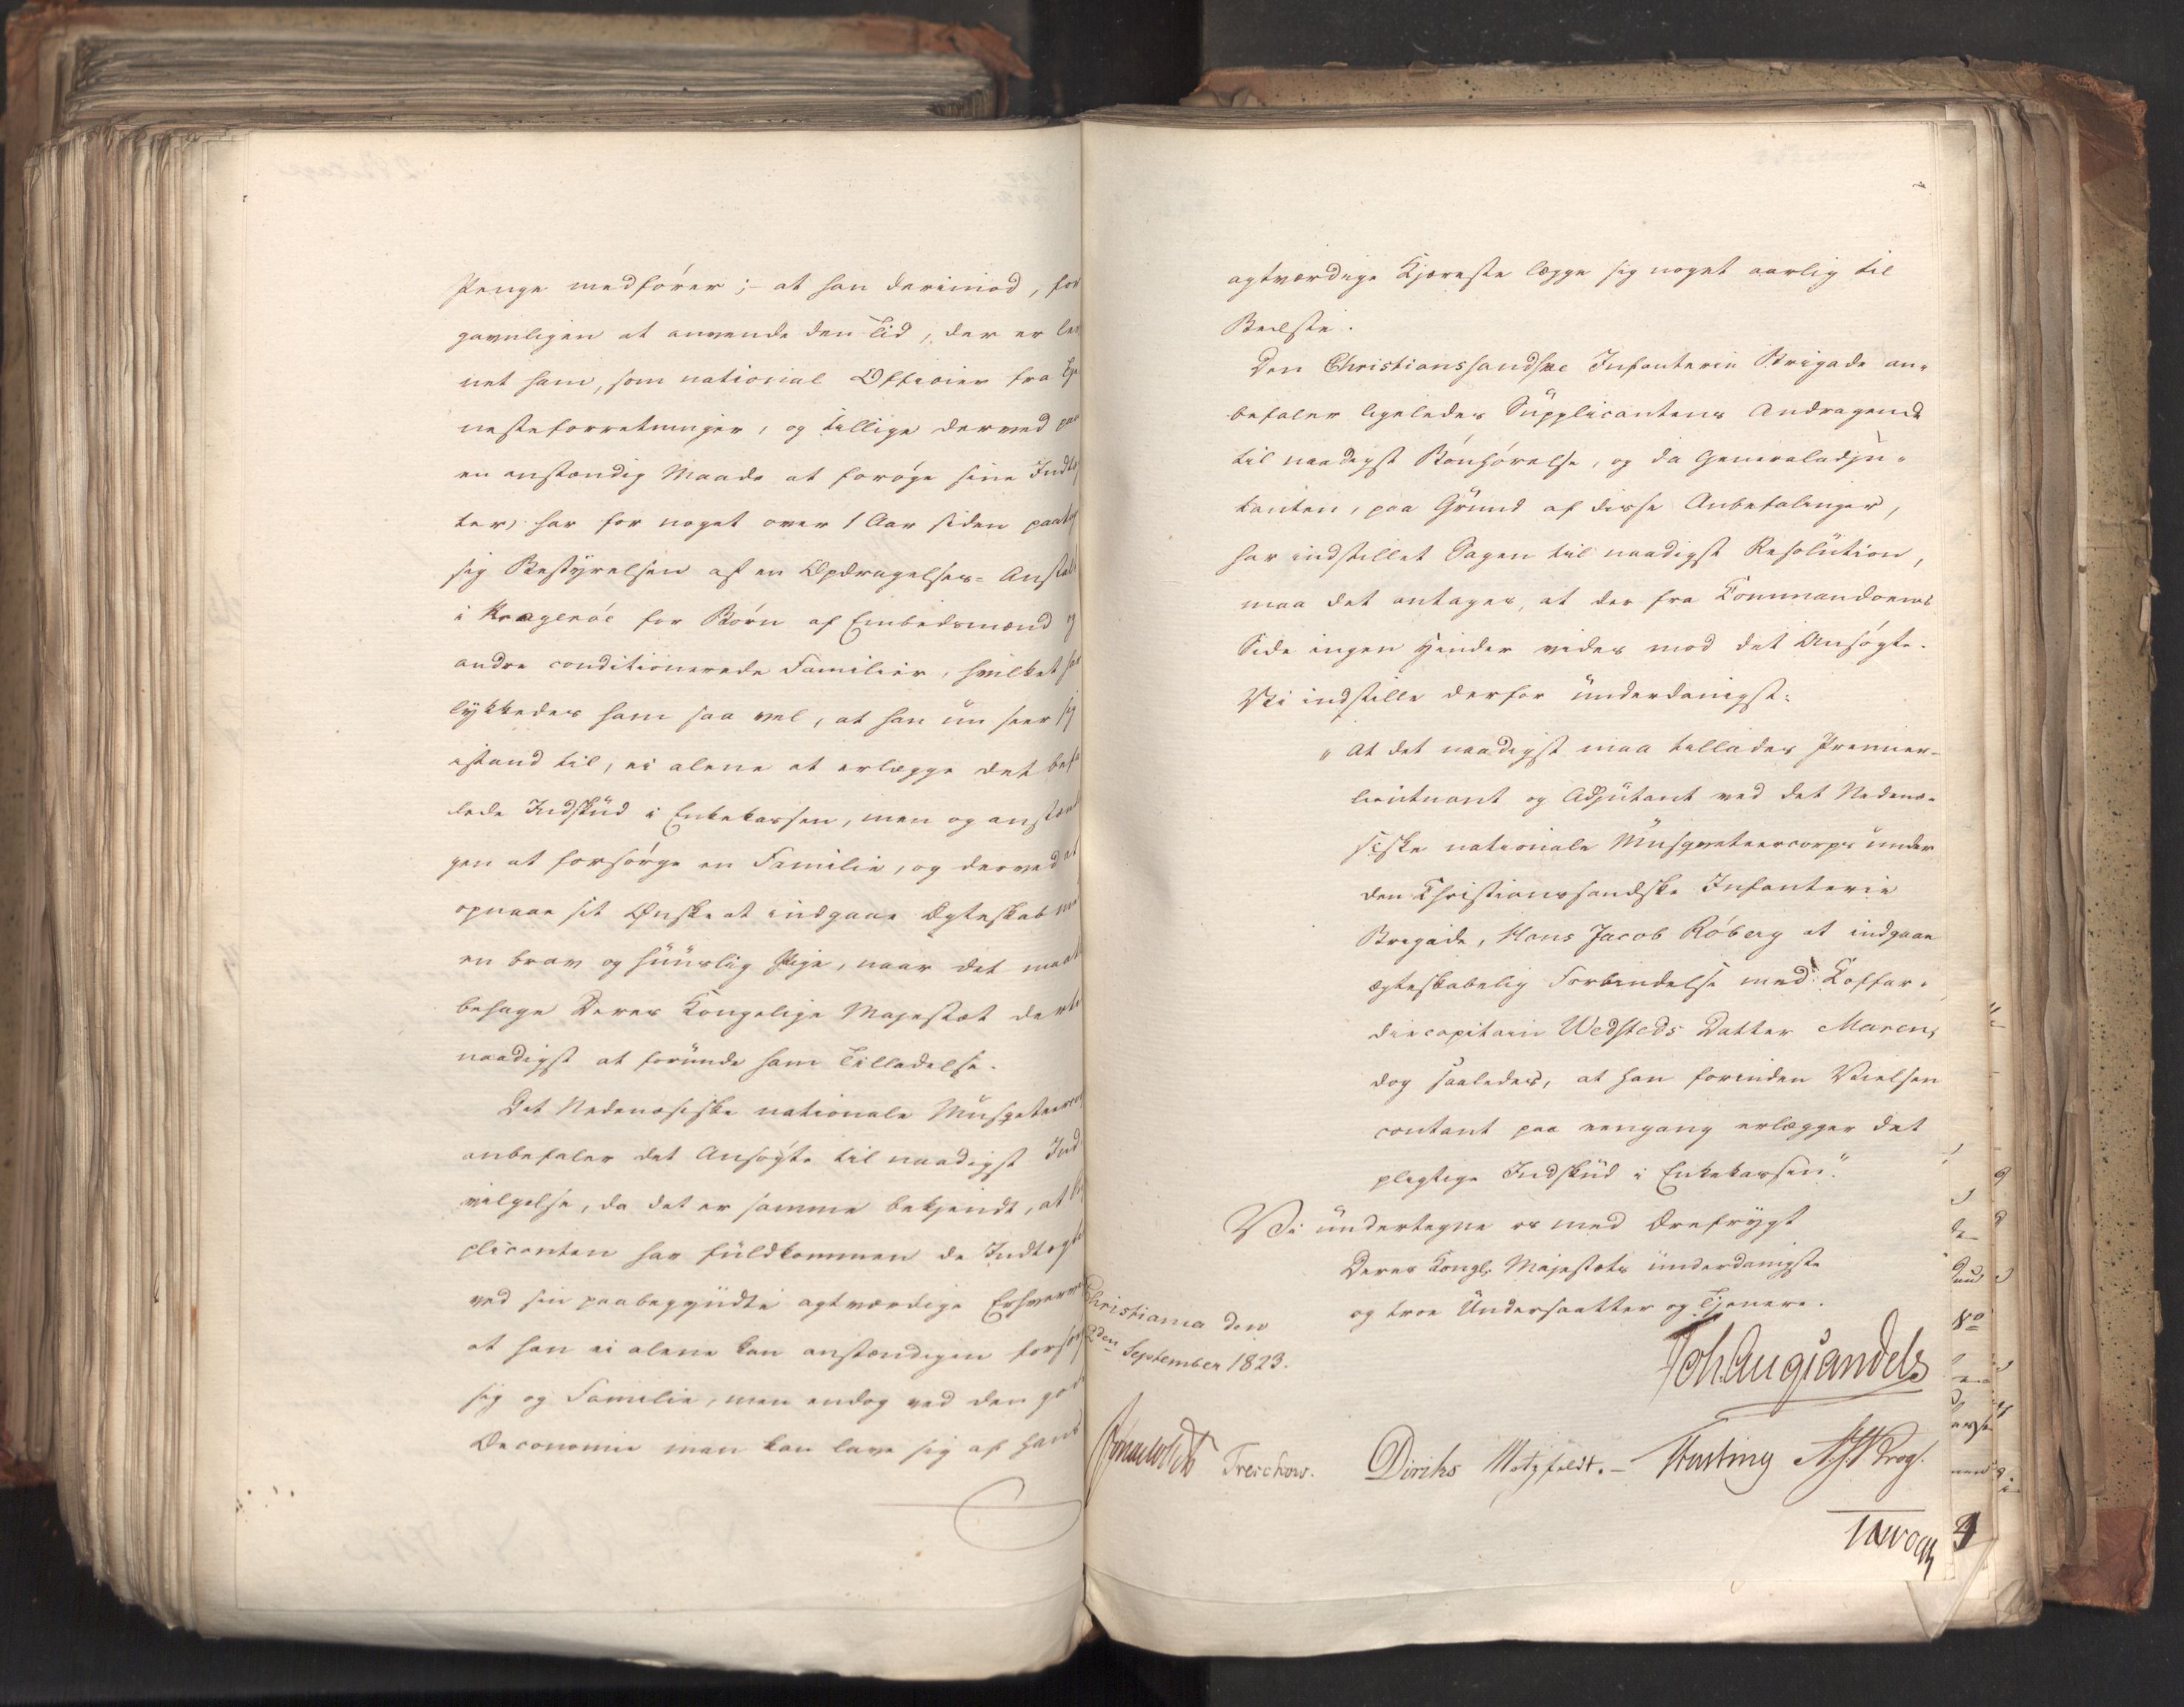 Penge medfører; – at han derimod, for
gavnligen at anvende den Tid, der er lev
net ham, som national Officier fra Tje
nesteforretninger, og tillige derved paa
en anstændig Maade at forøge sine Indtæg
ter, har for noget over 1 Aar siden paataget
sig Bestyrelsen af en Opdragelses-Anstalt
i Kragerøe for Børn af Embedsmænd og
andre conditionerede Familier, hvilket har
lykkedes ham saa vel, at han nu seer sig
istand til, ei alene at erlægge det befa
lede Indskud i Enkekassen, men og anstændi
gen at forsørge en Familie, og derved at
opnaae sit Ønske at indgaae Ægteskab med
en brav og huuslig Pige, naar det maatte
behage Deres Kongelige Majestæt dertil
naadigst at forunde ham Tilladelse.
Det Nedenæsiske nationale Musqueteercorps
anbefaler det Ansøgte til naadigst Ind-
vilgelse, da det er samme bekjendt, at Sup
plicanten har fuldkommen de Indtægter
ved sin paabegyndte agtværdige Erhverv
at han ei alene kan anstændigen forsørge
sig og Familie, men endog ved den gode
Oeconomie man kan love sig af hans
agtværdige Kjæreste lægge sig noget aarlig til
Bedste.
Den Christianssandske Infanterie Brigade an-
befaler ligeledes Supplicantens Andragende
til naadigst Bønhørelse, og da Generaladju-
tanten, paa Grund af disse Anbefalinger,
har indstillet Sagen til naadigst Resolution,
maa det antages, at der fra Commandoens
Side ingen Hinder vides mod det Ansøgte.
Vi indstille derfor underdanigst:
„At det naadigst maa tillades Premier-
lieutnant og Adjutant ved det Nedenæ-
siske nationale Musqueteercorps under
den Christianssandske Infanterie
Brigade, Hans Jacob Røberg at indgaae
ægteskabelig Forbindelse med Coffar-
diecapitain Wedsteds Datter Maren,
dog saaledes, at han forinden Vielsen
contant paa eengang erlægger det
pligtige Indskud i Enkekassen."
Vi undertegne os med Ærefrygt
Deres Kongl. Majestæts underdanigste
og troe Undersaatter og Tjenere.
Christiania den
2den September 1823.
Joh. Aug. Sandels
Sommerhielm Treschow. Diriks Motzfeldt. – Fasting